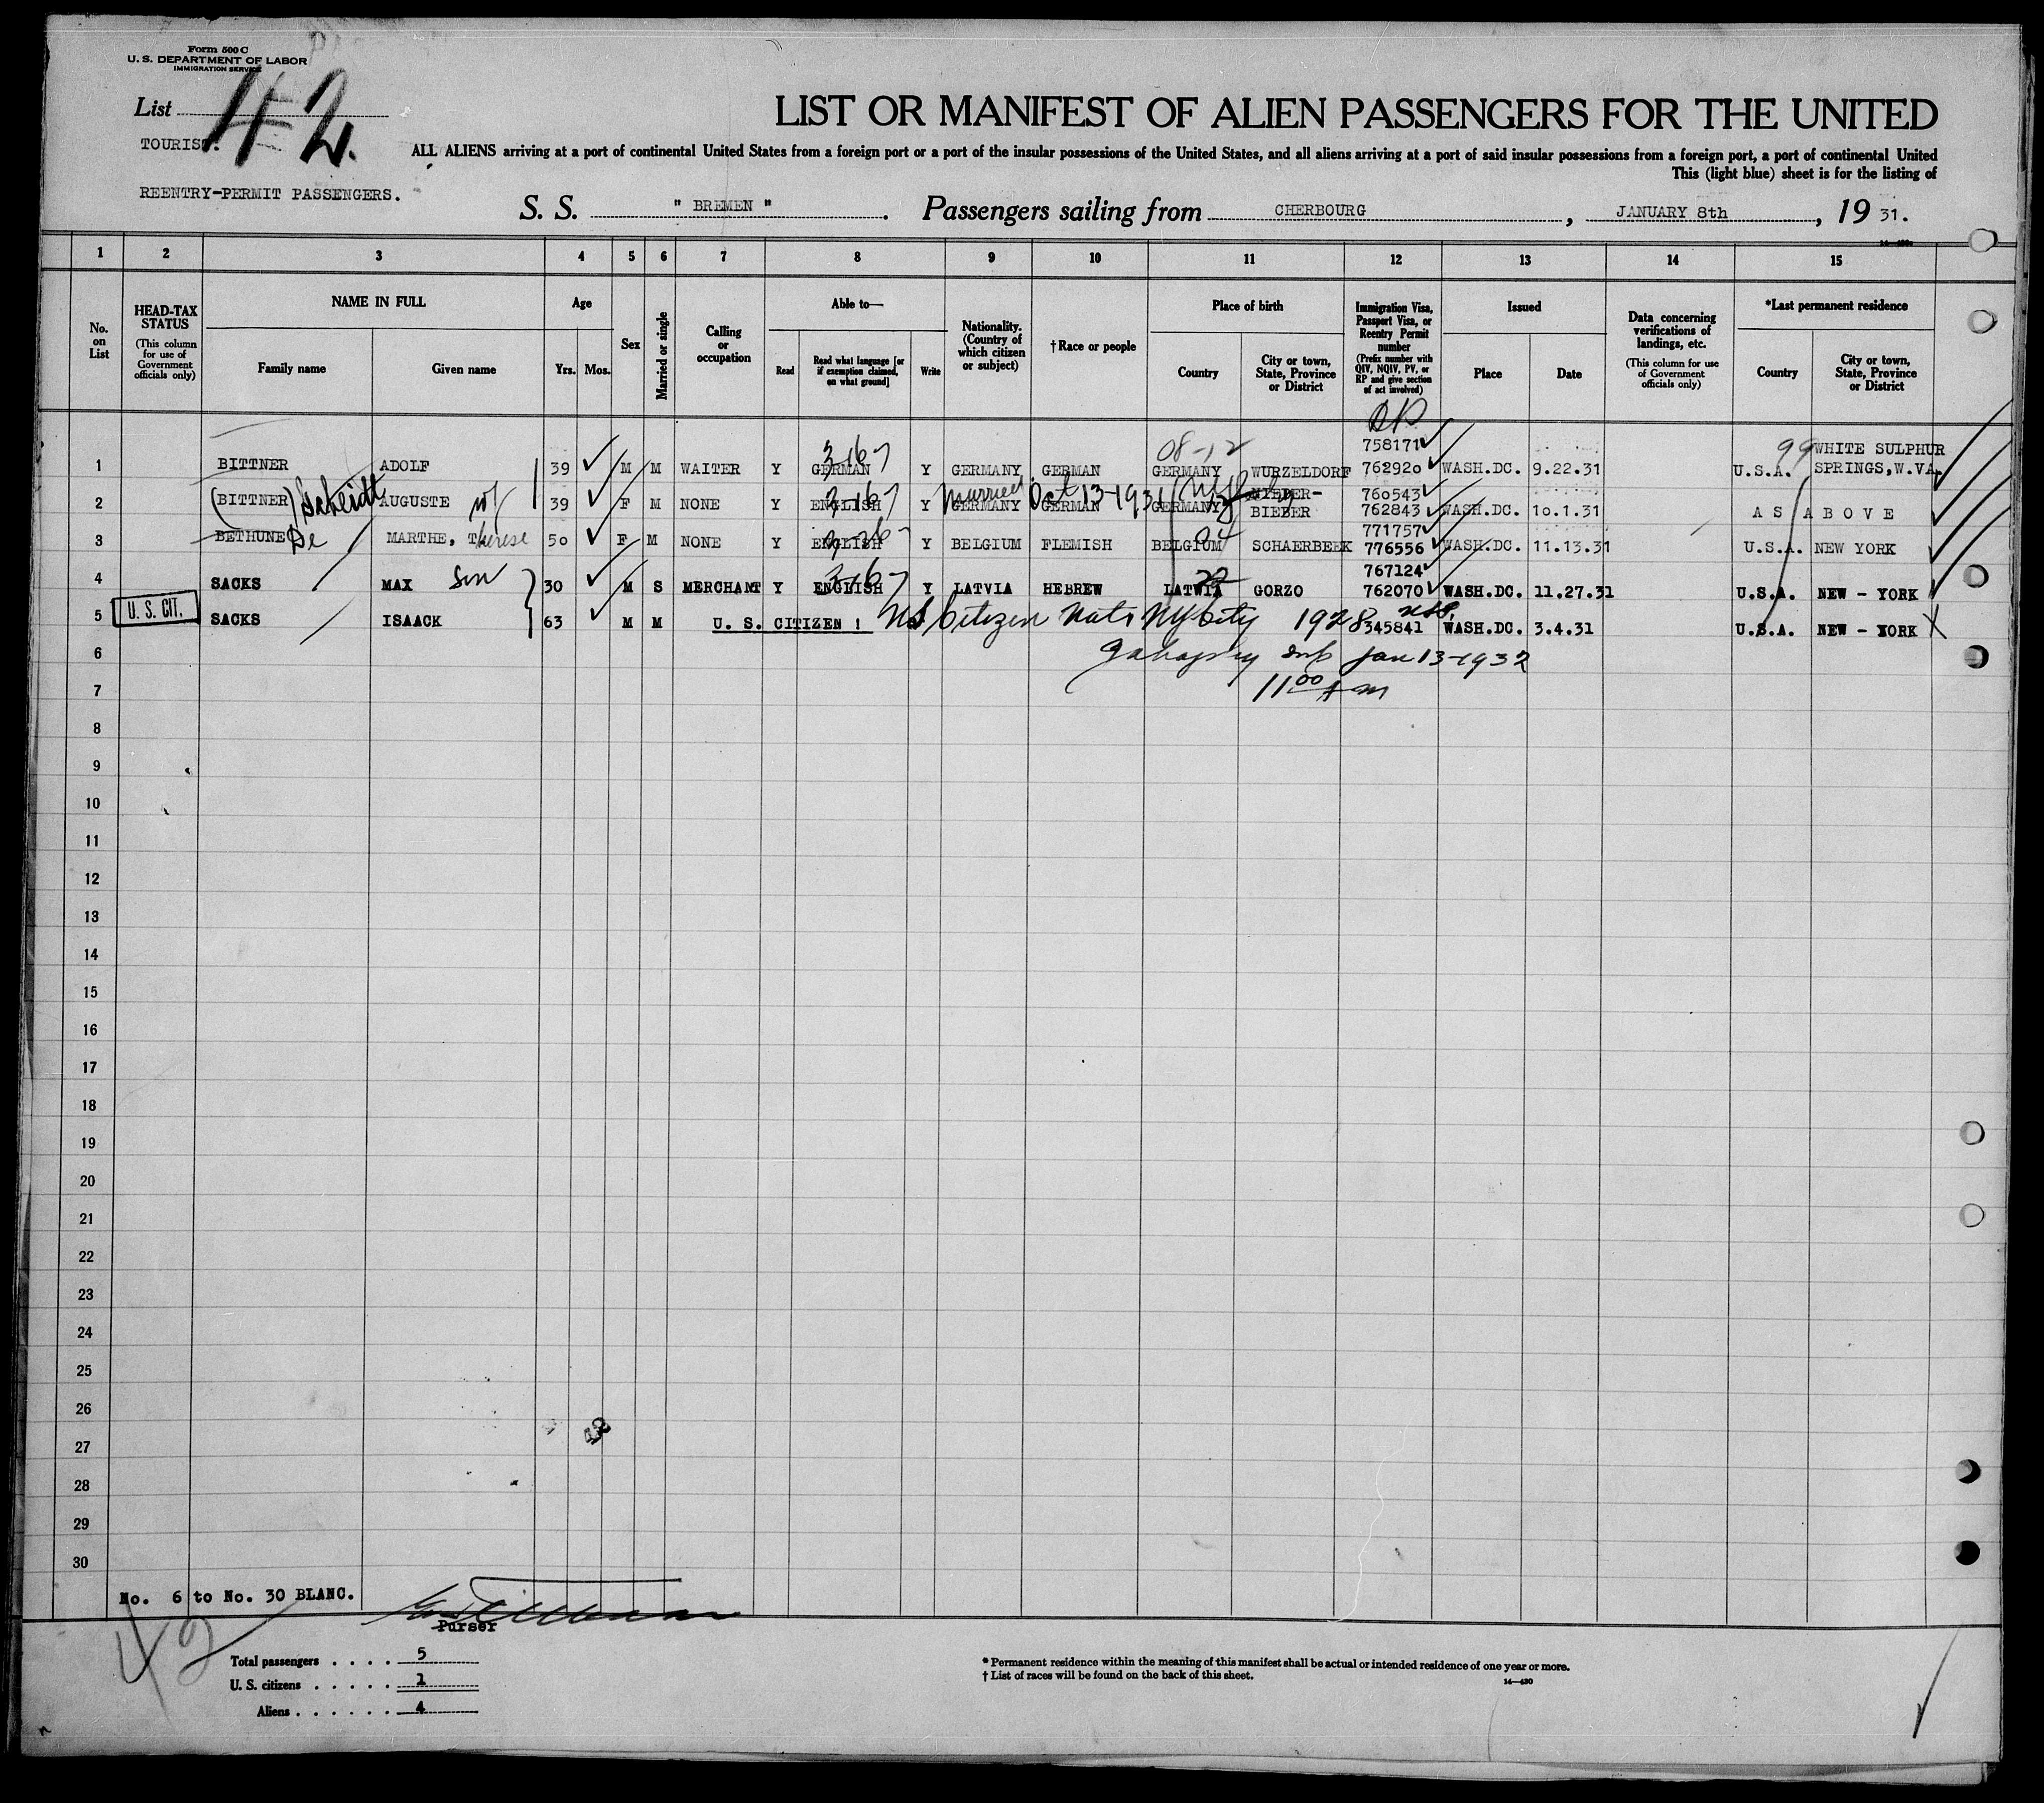 Form 500 C
U. S. DEPARTMENT OF LABOR
IMMIGRATION SERVICE
List 42.
TOURIST.
REENTRY-PERMIT PASSENGERS.
LIST OR MANIFEST OF ALIEN PASSENGERS FOR THE UNITED
ALL ALIENS arriving at a port of continental United States from a foreign port or a port of the insular possessions of the United States, and all aliens arriving at a port of said insular possessions from a foreign port, a port of continental United
This (light blue) sheet is for the listing of
S. S. " BREMEN " . Passengers sailing from CHERBOURG , JANUARY 8th , 19 31.
1 2 3 4 5 6 7 8 9 10 11 12 13 14 15
No. on List
HEAD-TAX STATUS
(This column for use of Government officials only)
NAME IN FULL
Family name Given name
Age
Yrs. Mos.
Sex
Married or single
Calling or occupation
Able to—
Read Read what language [or if exemption claimed, on what ground] Write
Nationality. (Country of which citizen or subject)
†Race or people
Place of birth
Country City or town, State, Province or District
Immigration Visa, Passport Visa, or Reentry Permit number
(Prefix number with QIV, NQIV, PV, or RP and give section of act involved)
Issued
Place Date
Data concerning verifications of landings, etc.
(This column for use of Government officials only)
*Last permanent residence
Country City or town, State, Province or District
RP
3-167 08-12 758171 99 WHITE SULPHUR
1 BITTNER ADOLF 39 M M WAITER Y GERMAN Y GERMANY GERMAN GERMANY WURZELDORF 762920 WASH.DC. 9.22.31 U.S.A. SPRINGS,W.VA.
Scheidt w/ 3-167 married Oct 13-1931 NIEDER- 760543
2 (BITTNER) AUGUSTE 39 F M NONE Y ENGLISH Y GERMANY GERMAN GERMANY BIEBER 762843 WASH.DC. 10.1.31 AS ABOVE
771757
3 BETHUNE De MARTHE, Therese 50 F M NONE Y ENGLISH Y BELGIUM FLEMISH BELGIUM SCHAERBEEK 776556 WASH.DC. 11.13.31 U.S.A. NEW YORK
3-167 767124
4 SACKS MAX Son 30 M S MERCHANT Y ENGLISH Y LATVIA HEBREW LATVIA GORZO 762070 WASH.DC. 11.27.31 U.S.A. NEW - YORK
U. S. CIT.
5 SACKS ISAACK 63 M M U. S. CITIZEN ! US Citizen Nats NY City 1928 345841 WASH.DC. 3.4.31 U.S.A. NEW - YORK X
6 Jan 13-1932
7 11 00 Am
8
9
10
11
12
13
14
15
16
17
18
19
20
21
22
23
24
25
26
27
28
29
30
No. 6 to No. 30 BLANC.
42
Purser
Total passengers . . . . 5
U. S. citizens . . . . . 1
Aliens . . . . . . 4
* Permanent residence within the meaning of this manifest shall be actual or intended residence of one year or more.
† List of races will be found on the back of this sheet.
14—430